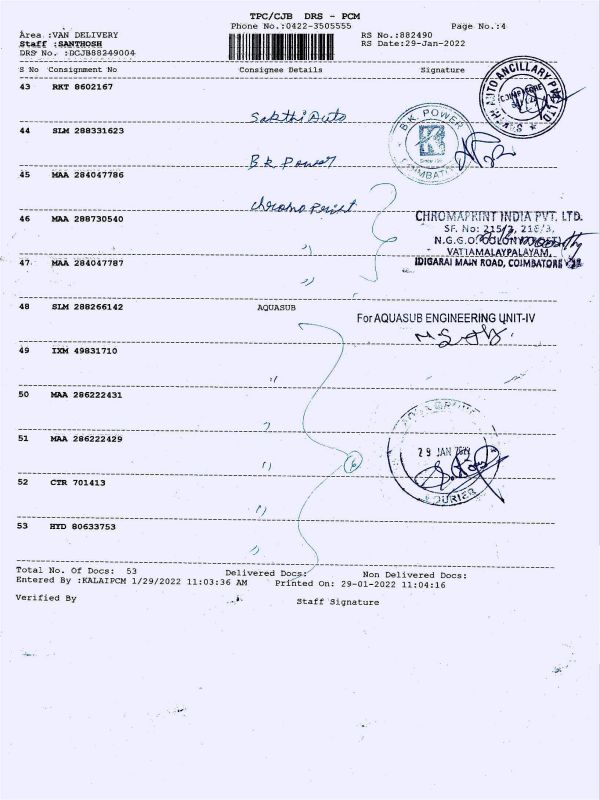 TPC/CJB DRS - PCM
Phone No.:0422-3505555 Page No.:4
Area :VAN DELIVERY
RS No.:882490
Staff :SANTHOSH
RS Date:29-Jan-2022
DRS No. :DCJB88249004
S No Consignment No Consignee Details Signature
43 RKT 8602167
Sakthi Auto
44 SLM 288331623
B.K. POWER
COIMBATORE
B.K Power
45 MAA 284047786
Chromo Print
46 MAA 288730540
CHROMAPRINT INDIA PVT. LTD.
SF. No: 215/2, 216/3,
N.G.G.O. COLONY
VATTAMALAYPALAYAM,
IDIGARAI MAIN ROAD, COIMBATORE
〃
47 MAA 284047787
〃
48 SLM 288266142 AQUASUB
For AQUASUB ENGINEERING UNIT-IV
49 IXM 49831710
〃
50 MAA 286222431
〃
51 MAA 286222429
29 JAN 2022
COURIER
〃
6
52 CTR 701413
〃
53 HYD 80633753
〃
Total No. Of Docs: 53 Delivered Docs: Non Delivered Docs:
Entered By :KALAIPCM 1/29/2022 11:03:36 AM Printed On: 29-01-2022 11:04:16
Verified By Staff Signature